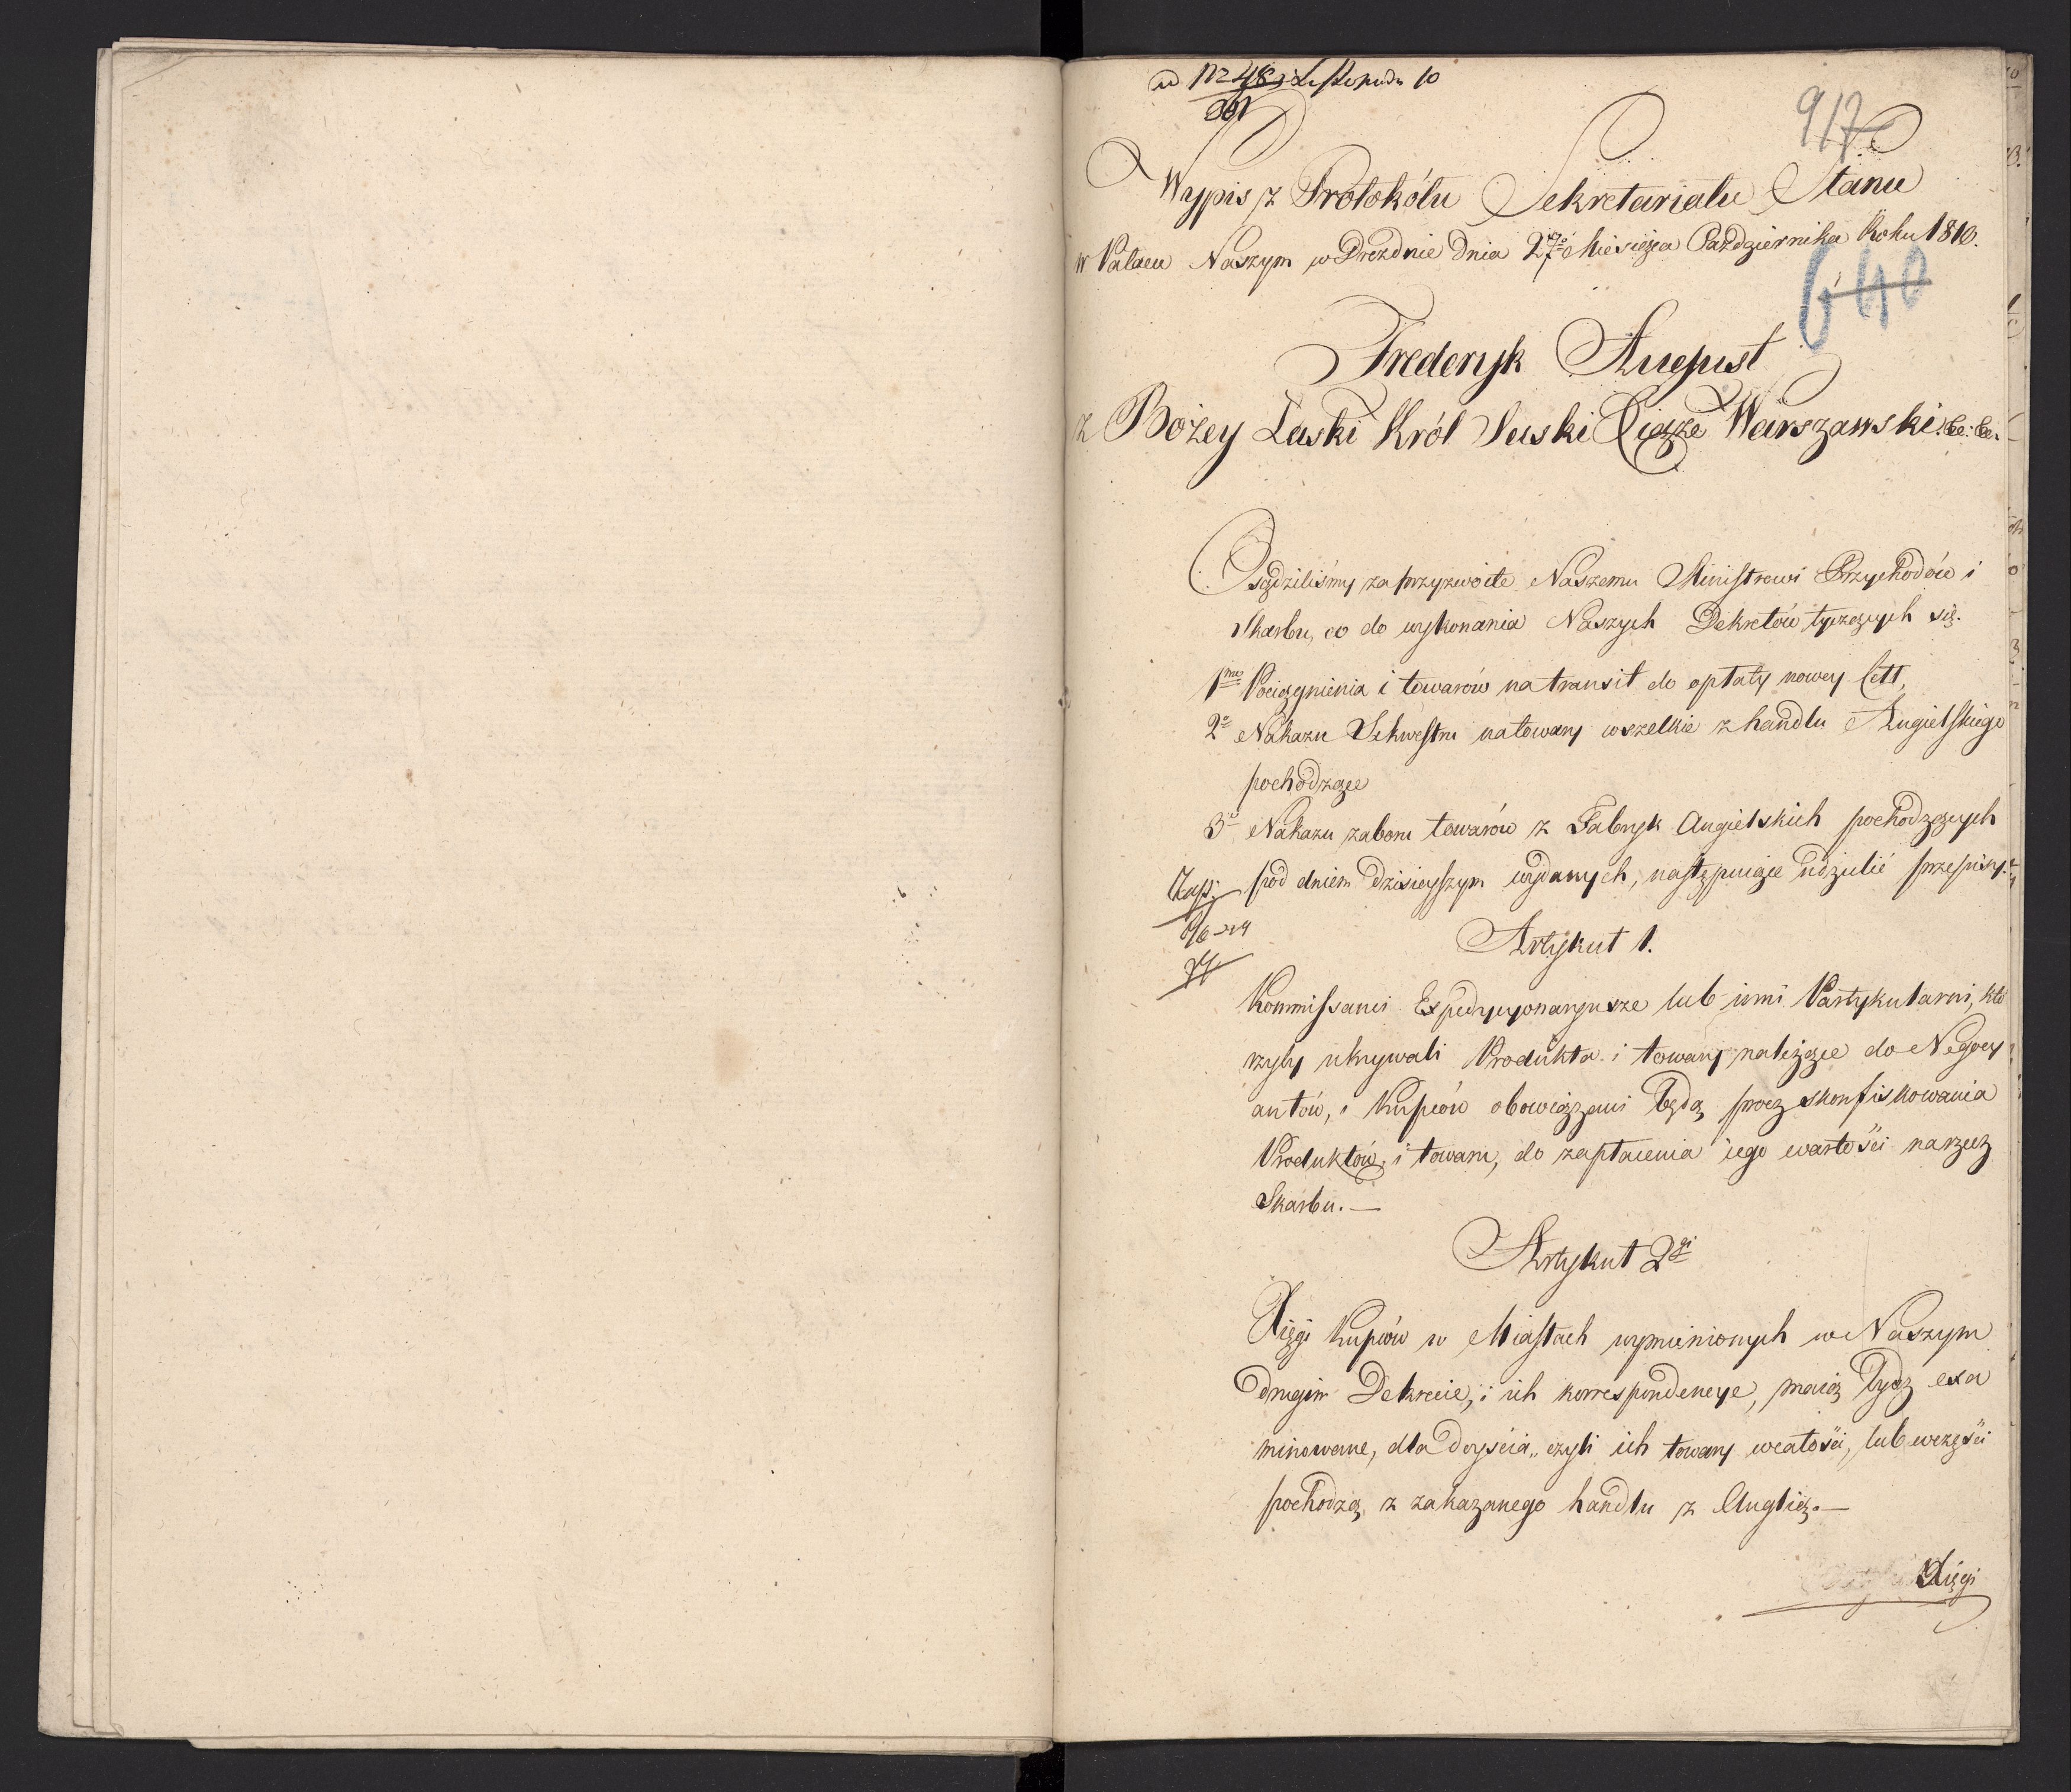 917
Wypis z Protokółu Sekretariatu Stanu
w Pałacu Naszym w Dreźdnie Dnia 27go Miesiąca Października Roku 1810.
640
Frederyk August
z Bożey Łaski Król Saski Xiąże Warszawski &c: &c.
Osądziliśmy za przyzwoite Naszemu Ministrowi Przychodów i
Skarbu, co do wykonania Naszych Dekretów tyczących się.
1mo Pociągnienia i towarów na transit do opłaty nowey Cett,
2o Nakazu Sekwestru na towary wszelkie z handlu Angielskiego
pochodzące
3o Nakazu zaboru towarów z Fabryk Angielskich pochodzących
pod dniem dzisieyszym wydanych, następuiące udzielić przepisy.
Artykuł 1.
Kommissanci Expedycyonaryusze lub inni Partykularni, któ
rzyby ukrywali Produkta i towary należące do Negocy
antów, i Kupców obowiązani będą prócz skonfiskowania
Produktów i towaru, do zapłacenia iego wartości narzecz
Skarbu. —
Artykuł 2gi
Xięgi Kupców w Miastach wymienionych w Naszym
drugim Dekrecie, i ich korrespondencye, maią bydź exa
minowane, dla doyścia, czyli ich towary wcałości, lub wczęści
pochodzą z zakazanego handlu z Anglią. —
Xięgi